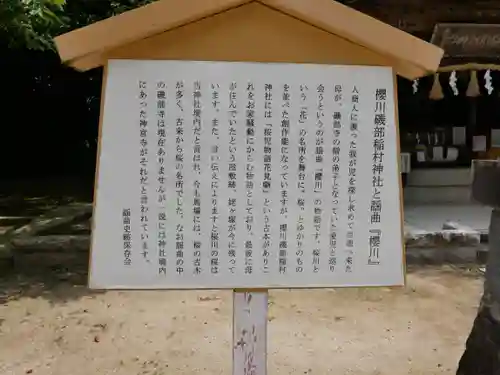 櫻川磯部稲村神社と謡曲『櫻川』
人商人に買った我が児を探し求めて回遊って来た
母が、磯部寺の僧の弟子となっていた愛児と巡り
会うというのが謡曲『櫻川』の物語です。桜川と
いう「花」の名所を舞台に、桜と、ゆかりのもの
を並べた創作能になっていますが、櫻川磯部稲村
神社には「桜児物語花見噺」という古本がありこ
れをお家騒動にからむ物語としており、最後に母
が住んでいたという回敷跡、姥々塚が今に残って
います。また、言い伝えによりますと桜川の桜は
当神社境内だと言はれ、今も馬場には、桜の古木
が多く、古来から桜の名所でした。なお謡曲の中
の磯部寺は現在ありませんが一説には神社境内
にあった神宮寺がそれだと言われています。
謡曲史跡保存会